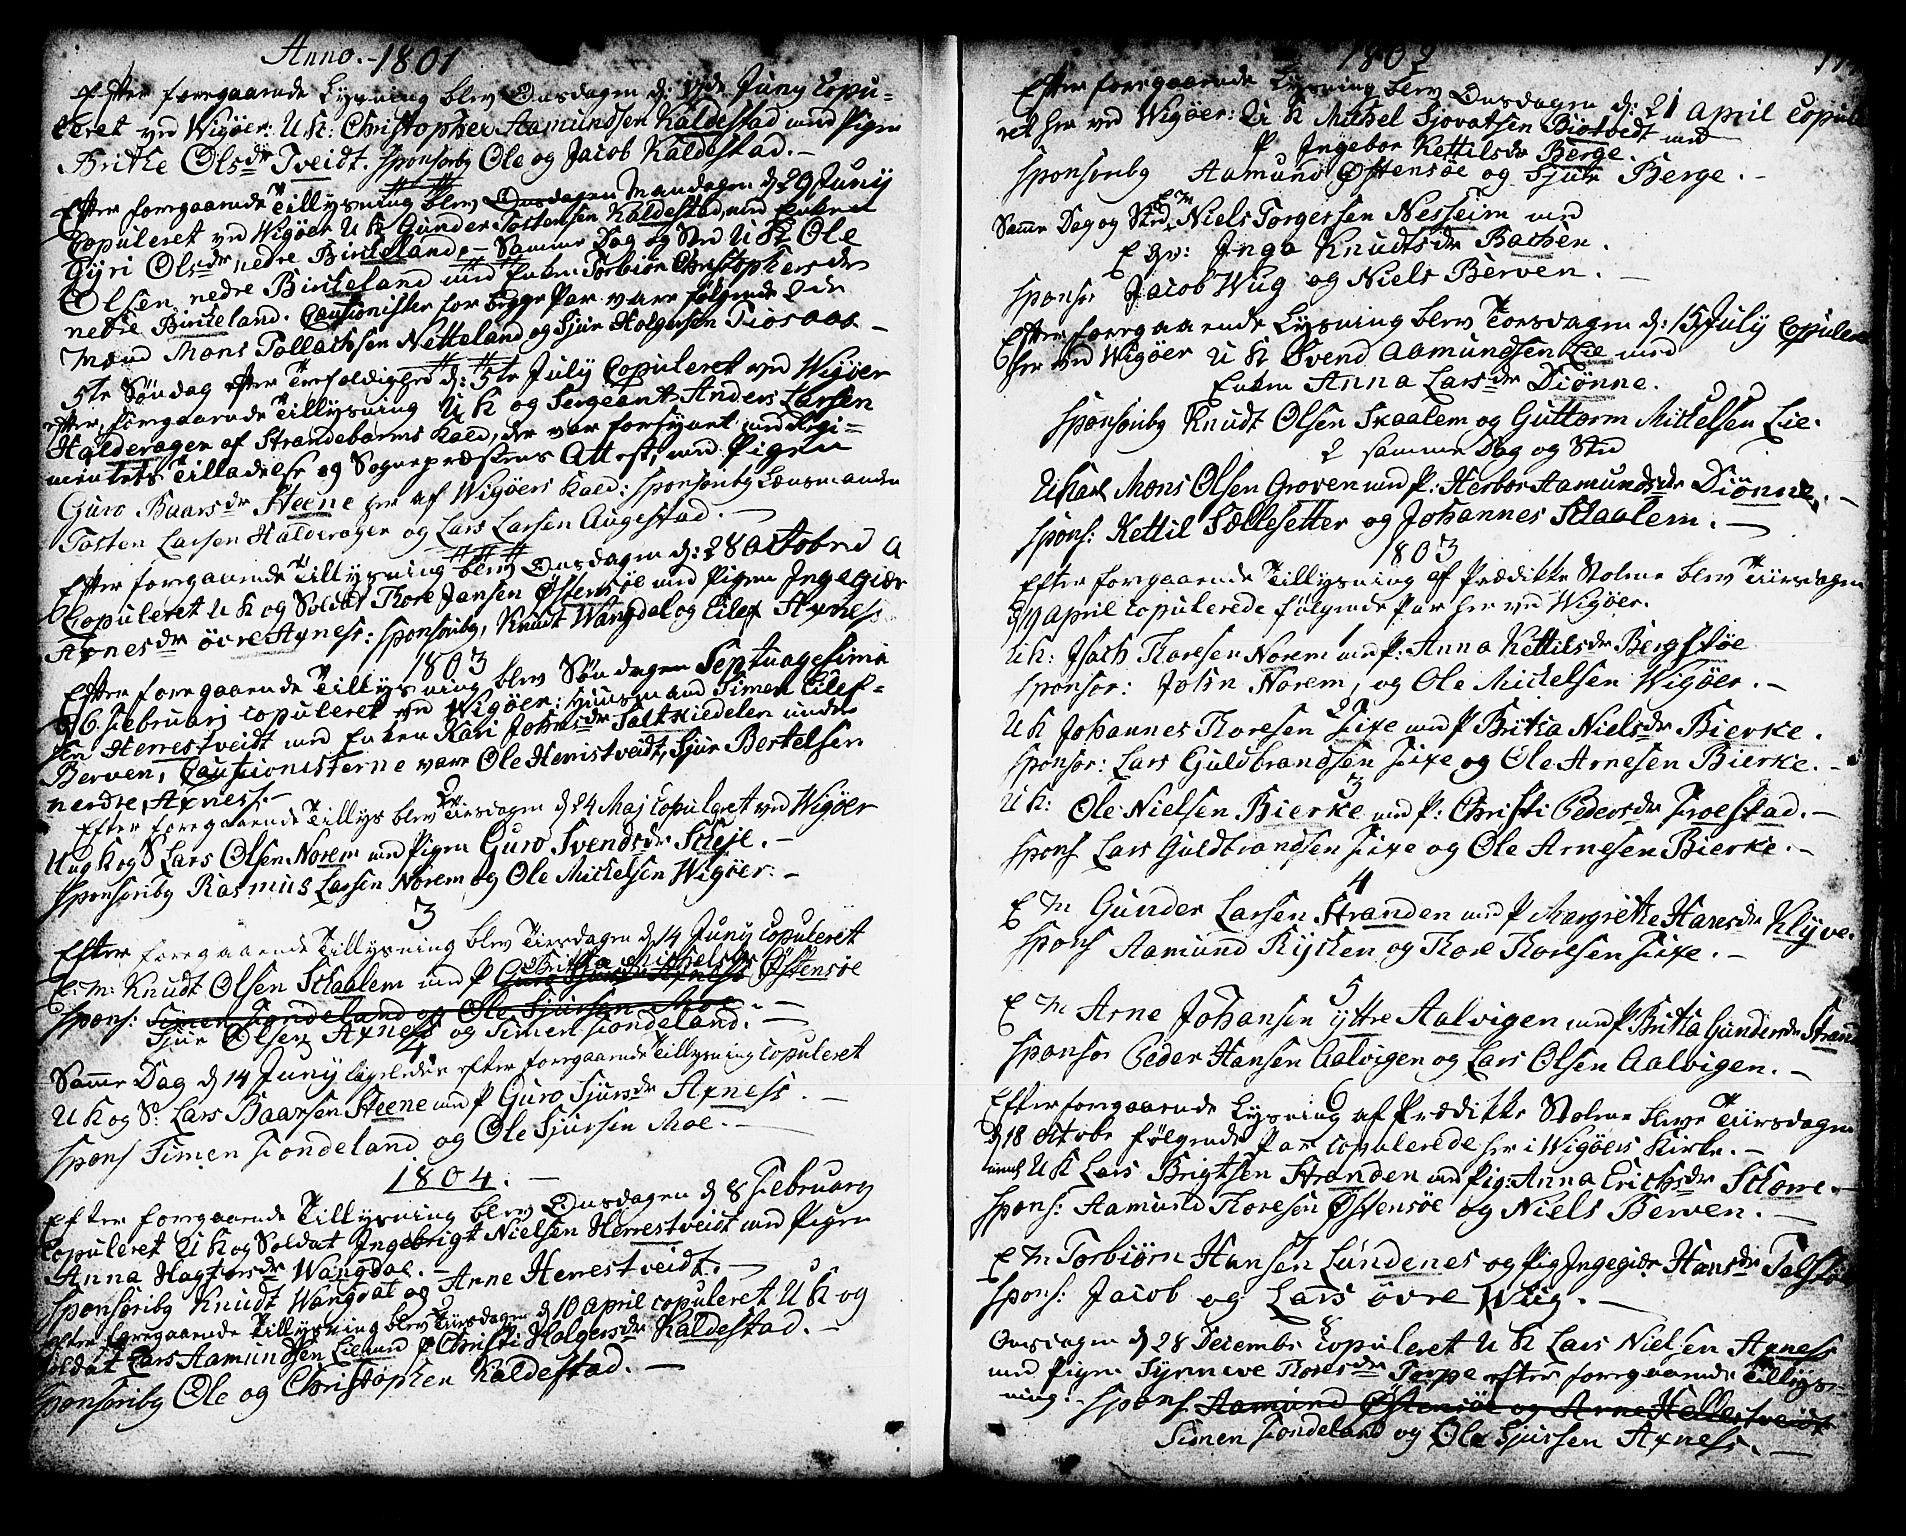 Anno. 1801
Efter foregaaende Lysning blev Onsdagen d: 17de Juny Copu-
leret ved Wigøer: U K: Christopher Aamundsen Kaldestad med Pigen
Britke Olsdr Tveidt. Sponsoriby Ole og Jacob Kaldestad. -
Efter foregaaende Tillysning blev Onsdagen Mandagen d 29 Juny
Copuleret ved Wigøer U K Gunder Tostensen Kaldestad, med Enken
Gyri Olsdr nedre Birkeland. - Samme Dag og Sted U K Ole
Olsen nedre Birkeland med Enken Torbiør Christophersdr
nedre Birkeland. Cautionister for begge Par vare følgende 2de
Mænd Mons Tollachsen Netteland og Sjur Holgersen Tiosaas -
5te Søndag efter Trefoldighed d: 5te July Copuleret ved Wigøer
efter foregaaende Tillysning U K og Sergeant Anders Larsen
Halderagen af Strandebarms Kald, der var forsynet med Regi-
mentets Tilladelse og Sognepræstens Attest, med Pigen
Guro Baarsdr Steene her af Wigøers Kald: Sponsoriby Lænsmanden
Tosten Larsen Halderagen og Lars Larsen Augestad. -
Efter foregaaende Tillysning blev Onsdagen d: 28 Octobr
Copuleret U K og Soldat Thore Jansen Østensøe med Pigen Ingegiær
Arnesdr øvre Axness: Sponsoriby, Knudt Wangdal og Eilef Axness
1803
Efter foregaaende Tillysning blev Søndagen Septuagesima
d 6 Februarj copuleret ved Wigøer: Huusmand Simen Eilef-
sen Herrestveidt med Enken Kari Johnsdr Saltkiedelen under
Berven, Cautionisterne vare Ole Herrestveidt, Sjur Bertelsen
nerdre Axness. -
2
Efter foregaaende Tillys blev Tirsdagen d 24 Maj copuleret ved Wigøer
U og K og S Lars Olsen Norem med Pigen Guro Svendsdr Steje. -
Sponsoriby Rasmus Larsen Norem og Ole Mickelsen Wigøer. -
3
Efter foregaaende Tillysning blev Tirsdagen d 14 Juny copuleret
E: M: Knudt Olsen Skaalem med P Guro Sjursdr Axness Britha Michelsdr Østensøe
Spons: Simen Tiondeland og Ole Sjursen Moe. -
Sjur Olsen Axness og Simen Tiondeland. -
4
Samme Dag d 14 Juny ligeledes efter foregaaende Tillysning copuleret
U K og S: Lars Baarsen Steene med P Guro Sjursdr Axness. -
Spons Simen Tiondeland og Ole Sjursen Moe. -
1804. -
Efter foregaaende Tillysning blev Onsdagen d 8 Februarj
Copuleret U K og Soldat Ingebrigt Nielsen Herrestveidt med Pigen
Anna Hagtorsdr Wangdal. -
Sponsoriby Knudt Wangdal og Arne Herrestveidt. -
efter foregaaende Tillysning blev Tirsdagen d 10 April copuleret U K og
Soldat Lars Aamundsen Lie med P Christi Holgersdr Kaldestad. -
Sponsoriby Ole og Christophen Kaldestad. -
1802
Efter foregaaende Lysning blev Onsdagen d: 21 April Copule
ret her ved Wigøer: U K Mickel Sjovatsen Biotvedt med
P Ingebor Kettilsdr Berge.
Sponsoriby Aamund Østensøe og Sjur Berge. -
Samme Dag og Sted E M Niels Torgersen Nesseim med
E Qv: Inga Knudtsdr Bachen.
Sponsor Jacob Wug og Niels Berven. -
Efter foregaaende Lysning blev Torsdagen d: 15 July Copuleret
her ved Wigøer U K Svend Aamundsen Lie med
Enken Anna Larsdr Diønne.
Sponsoriby Knudt Olsen Skaalem og Guttorm Mickelsen Lie.
2 samme Dag og Sted
U Karl Mons Olsen Groven med P: Herbor Aamundsdr Diønne. -
Spons: Kettil Sællesetter og Johannes Skaalem. -
1803
Efter foregaaende Tillysning af Prædikke Stolene blev Tiirsdagen
d 19 April copulerede følgende Par her ved Wigøer.
1
U K: Isach Thoresen Norem med P: Anna Kettilsdr Bergstøe
Sponsor: John Norem, og Ole Mickelsen Wigøer. -
2
U K Johannes Thoresen Fixe med P Britha Nielsdr Bierke.
Sponsor: Lars Guldbrandsen Fixe og Ole Arnesen Bierke. -
3
U K: Ole Nielsen Bierke med P: Christi Pedersdr Froestad. -
Spons Lars Guldbrandsen Fixe og Ole Arnesen Bierke. -
4
E M Gunder Larsen Stranden med P Margrethe Haresdr Klyve.
Spons Aamund Rycken og Thore Thoresen Fixe. -
5
E M Arne Johansen yttre Aalvigen med P Britha Gundersdr Strand
Sponsor Peder Hansen Aalvigen og Lars Olsen Aalvigen. -
6
Efter foregaaende Lysning af Prædikke Stolene bleve Tiirsdagen
d 18 Octobr følgende Par copulerede her i Wigøers Kirke. -
U K Lars Brigtsen Stranden med Pig: Anna Erichsdr Skorre. -
Spons: Aamund Thoresen Østensøe og Niels Berven. -
7
E M Torbiørn Hansen Lundenes og Pig Ingegiær Hansdr Talstø
Spons: Jacob og Lars øvre Wug. -
8
Onsdagen d 28 Decembr copuleret U K Lars Nielsen Axness
med Pigen Synneve Thoresdr Torpe efter foregaaende Tillys-
ning. - Spons Aamund Østensøe og Arne Hellestveidt
Simen Tiondeland og Ole Sjursen Axness. -